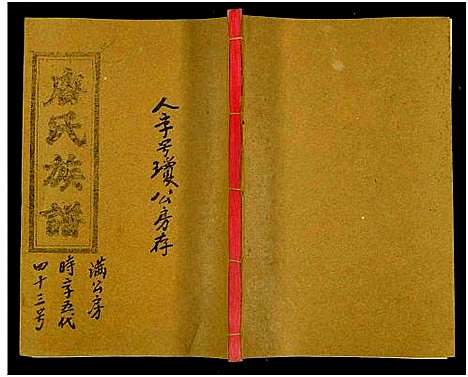 唐氏族譜
人字号瓊公房存
满公房
時字五代
四十三号